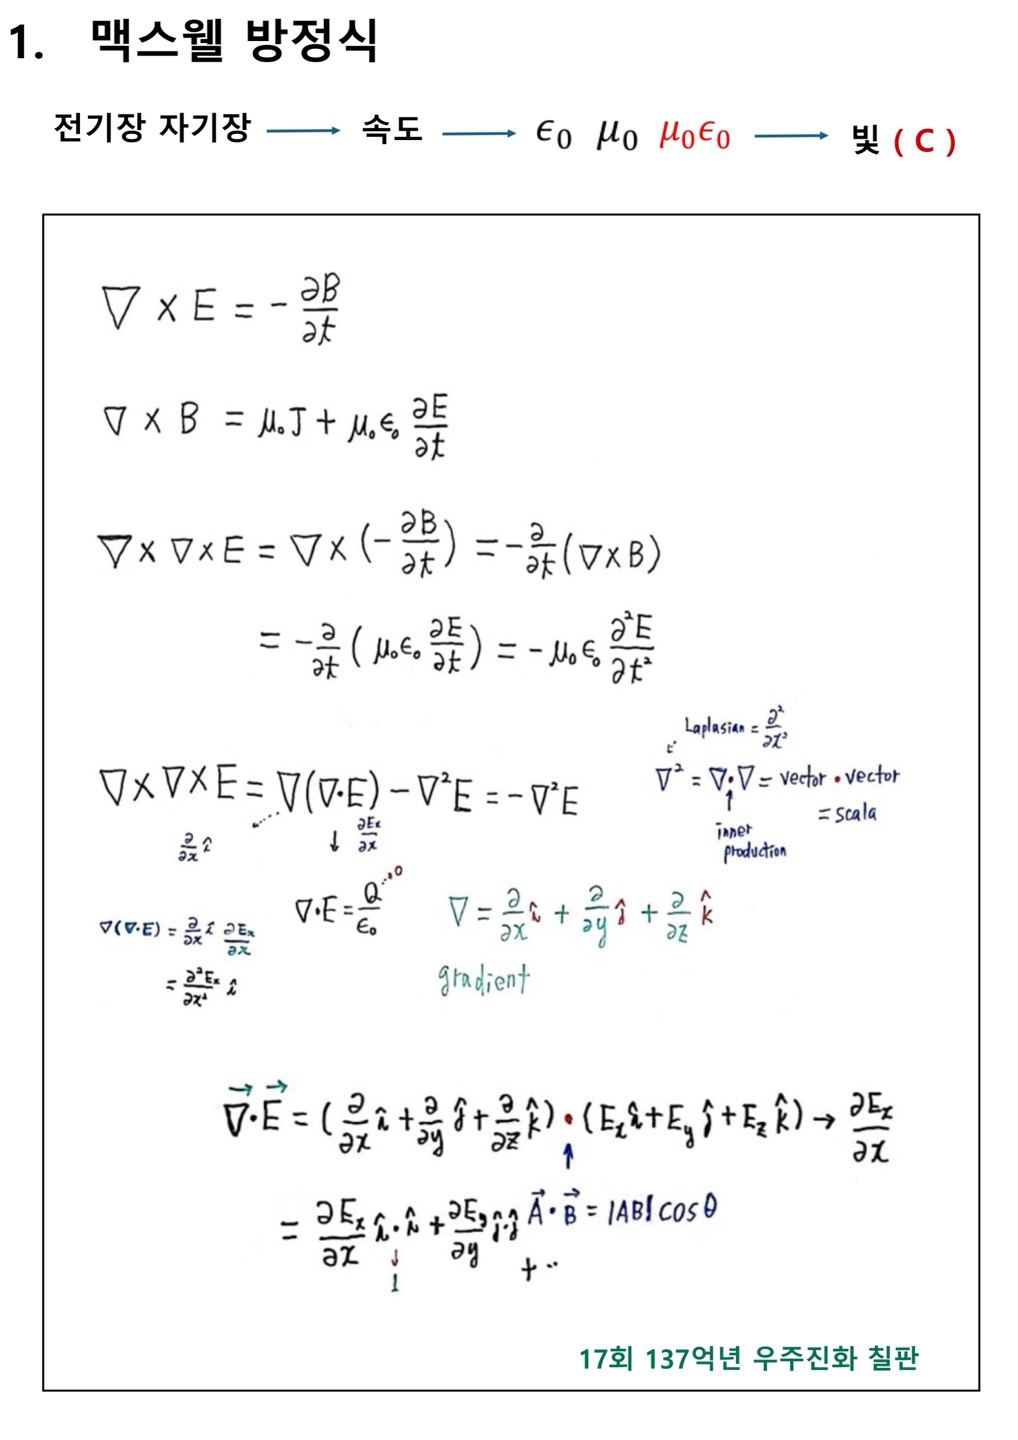 1. 맥스웰 방정식
전기장 자기장 → 속도 → ϵ₀ μ₀ μ₀ϵ₀ → 빛 ( C )
∇ × E = - ∂B/∂t
∇ × B = μ₀J + μ₀ϵ₀ ∂E/∂t
∇ × ∇ × E = ∇ × (- ∂B/∂t) = - ∂/∂t (∇ × B)
= - ∂/∂t ( μ₀ϵ₀ ∂E/∂t ) = - μ₀ϵ₀ ∂²E/∂t²
Laplasian = ∂²/∂x²
∇ × ∇ × E = ∇(∇·E) - ∇²E = - ∇²E
∇² = ∇·∇ = vector · vector
= scala
↑
inner
production
∂/∂x î
↓ ∂Ex/∂x
∇·E = Q/ϵ₀ →0
∇ = ∂/∂x î + ∂/∂y ĵ + ∂/∂z k̂
gradient
∇(∇·E) = ∂/∂x î ∂Ex/∂x
= ∂²Ex/∂x² î
∇⃗·E⃗ = ( ∂/∂x î + ∂/∂y ĵ + ∂/∂z k̂ ) · (Ex î + Ey ĵ + Ez k̂) → ∂Ex/∂x
↑
= ∂Ex/∂x î·î + ∂Ey/∂y ĵ·ĵ
+ ··
↓
1
A⃗·B⃗ = |AB| cos θ
17회 137억년 우주진화 칠판